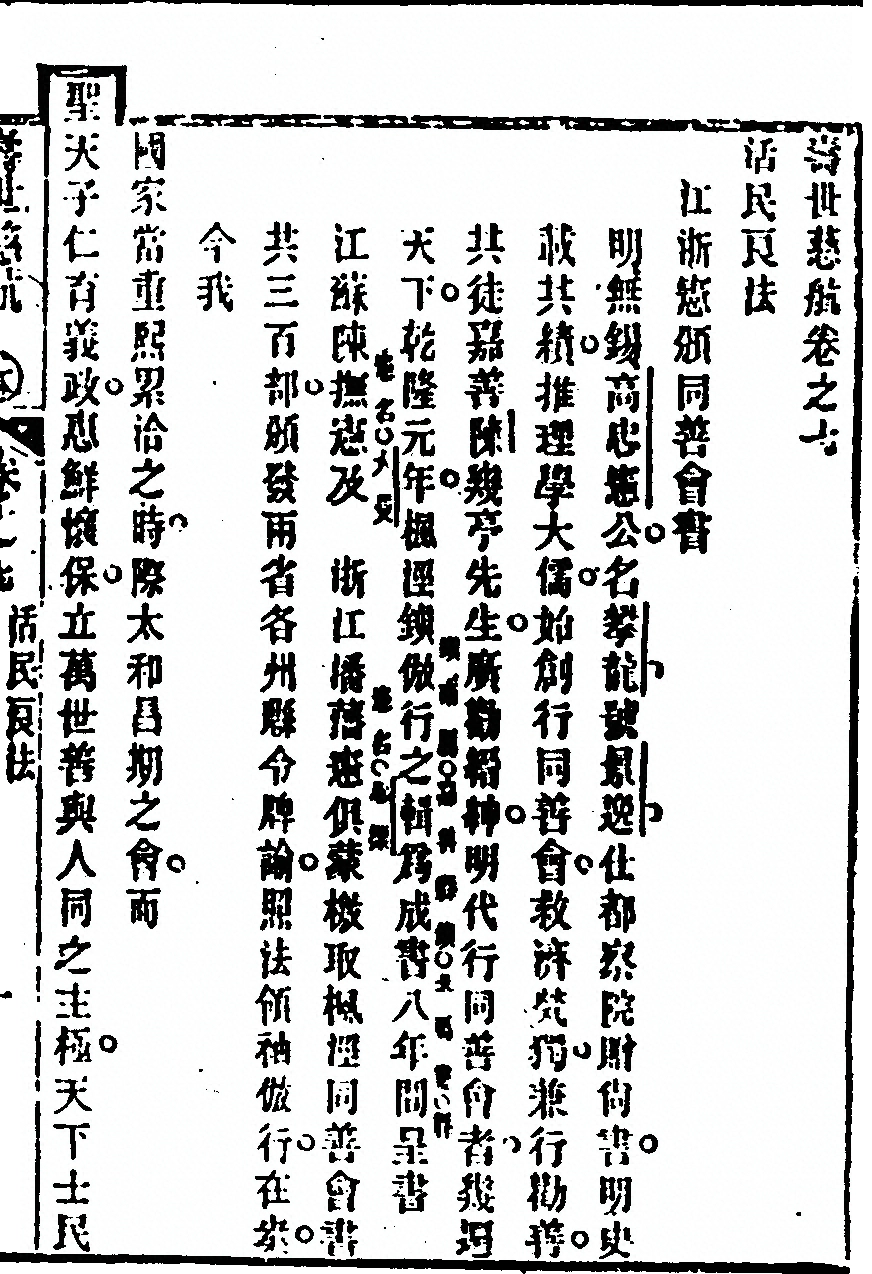 壽世慈航卷之七
活民良法
江浙憲頒同善會書
明無錫高忠憲公名攀龍號景逸仕都察院贈尚書明史
載其績推理學大儒始創行同善會救濟煢獨兼行勸善
其徒嘉善陳幾亭先生廣勸縉紳明代行同善會者幾遍
天下乾隆元年楓涇鎮倣行之輯為成書八年間呈書
江蘇陳撫憲及 浙江潘藩憲俱蒙檄取楓涇同善會書
共三百部頒發兩省各州縣令牌諭照法領袖倣行在案
今我
國家當重熙累洽之時際太和昌期之會而
聖天子仁育義政怨鮮懷保立萬世善與人同之主極天下士民
壽世慈航
卷之七
活民良法